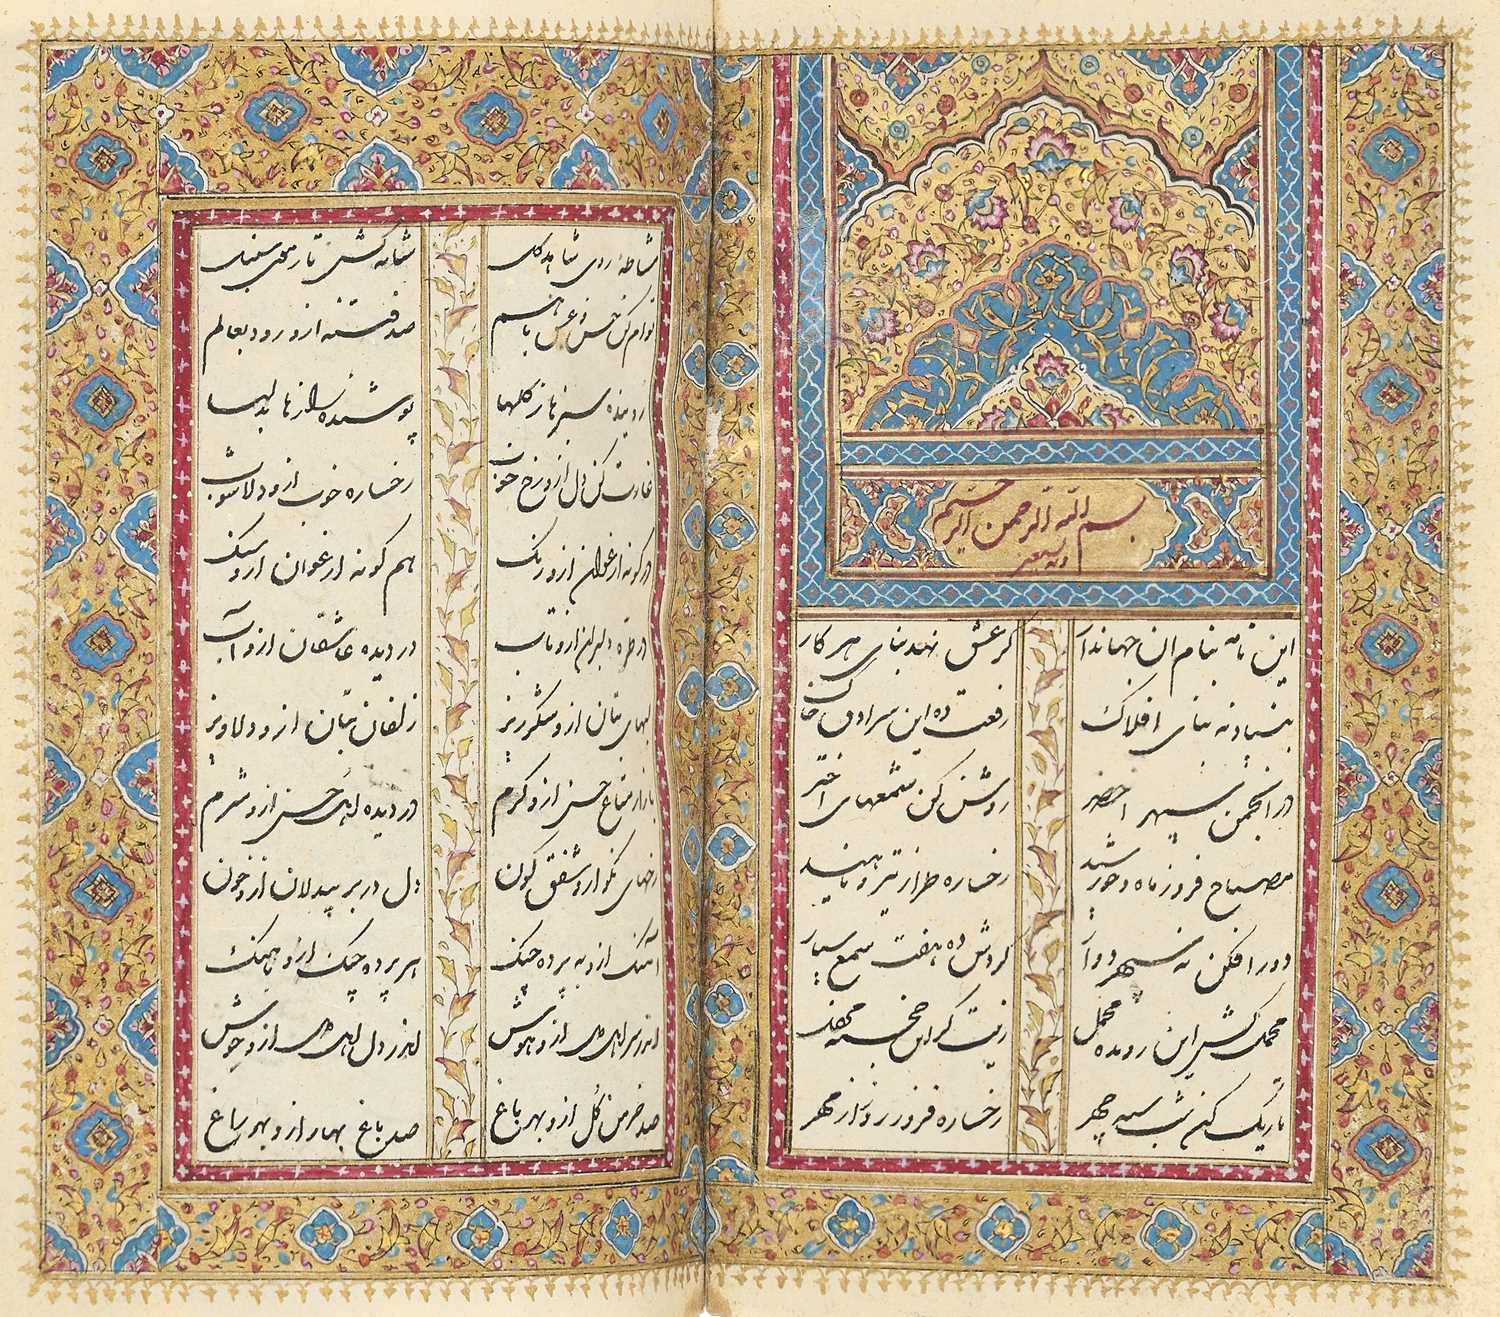 بسم الله الرحمن الرحیم
وبه نستعین
این نامه بنام ان جهاندآ کز عشق نهد بنای هر کار
بنیاد نه بنای افلاک رفعت ده این سرادق خاک
در انجمن سپهر اخضر روشن کن شمعهای اختر
مصباح فروز ماه و خورشید رخساره طراز تیر و ناهید
دور افکن نه سپهر دوآ گردش ده هفت شمع سیار
محمل کش این رونده محمل زینت گر این خجسته محفل
تاریک کن شب سیه چهر رخساره فروز روز از مهر
مشاطهٔ روی شاهد گل شانه کش تار موی سنبل
توام کن حسن و عشق با هم صد فتنه ازو رود بعالم
روینده سبزها ز گلها پوشنده رازها بدلها
غارت کن دل ازو رخ خوب رخساره خوب ازو دلاشوب
در گونه ارغوان ازو رنگ هم گونه ارغوان ازو سنگ
در طره دلبران ازو تاب در دیده عاشقان ازو آب
لبهای بتان ازو شکرریز زلفان بتان ازو دلاویز
بازار متاع حسن ازو گرم در دیده اهل حسن ازو شرم
رخهای نکو ازو شفق گون دل در بر بیدلان ازو خون
آهنگ ازو به پرده چنگ هر پرده چنگ ازو باهنگ
اندر سر اهل دل ازو هوش اندر دل اهل دل ازو جوش
صد خرمن گل ازو بهر باغ صد باغ بهار ازو بهر راغ